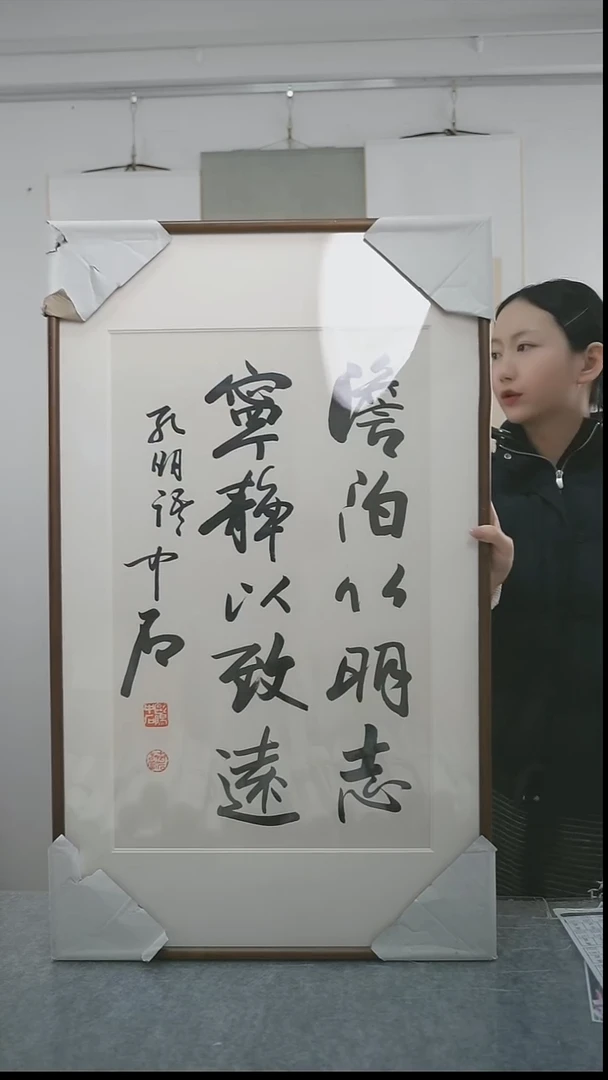 澹泊以明志
寧静以致遠
孔明语中石